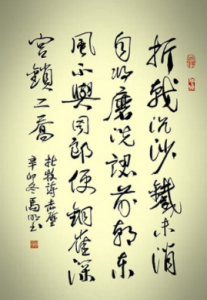 折戟沉沙鐵未消
自將磨洗認前朝東
風不與周郎便銅雀深
宮鎖二喬
杜牧詩赤壁
辛卯冬馬